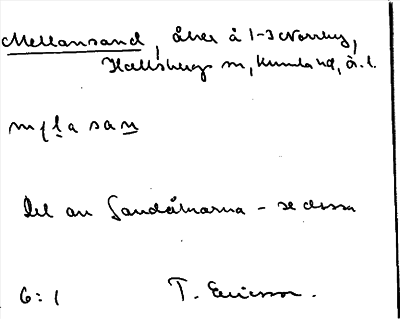 Mellansand, åker å 1-3 Norrby,
Hallsbergs sn, Kumla hd, ö. l.
mɛlasan
Del av Sandåkrarna - se dessa
6:1 T. Ericsson.